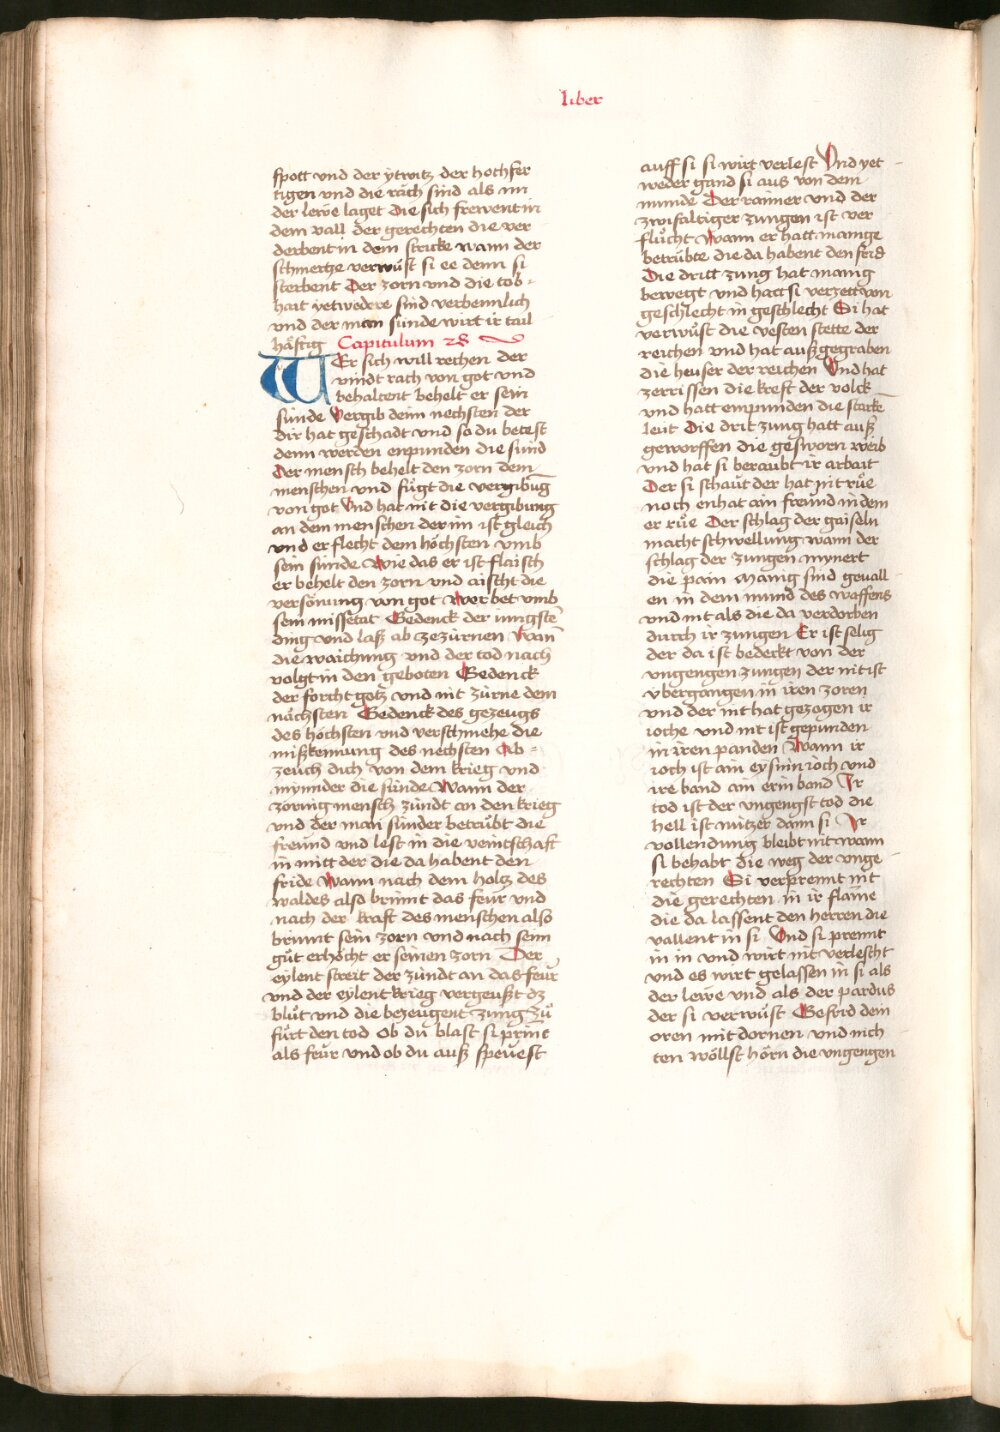 liber
spott vnd der ytwitz der hochfer
tigen vnd die räch sind als im
der lewe laget die sich frewent in
dem vall der gerechten die ver
derbent in dem stricke wann der
schmertze verwüst si ee denn si
sterbent Der zorn vnd die tob-
hait yetwedere sind verbennlich
vnd der man sunde wirt ir tail
häftig Capitulum 28
WEr sich will rechen der
vindt rach von got vnd
behaltent behelt er sein
sunde Vergib deim nechsten der
dir hat geschadt vnd so du betest
denn werden enpunden die sund
Der mensch behelt den zorn dem
menschen vnd fügt die vergibūg
von got Vnd hat nit die vergibung
an dem menschen der im ist gleich
vnd er flecht dem höchsten vmb
sein sunde Wie das er ist flaisch
er behelt den zorn vnd aischt die
versönung von got Wer bet vmb
sein missetat Gedenck der iungstē
ding vnd laß ab zezürnen Wan̄
die waichung vnd der tod nach
volgt in den geboten Gedenck
der forcht gotz vnd nit zürne dem
nächsten Gedenck des gezeugs
des höchsten vnd verschmehe die
mißkennung des nechsten Ab-
zeuch dich von dem krieg vnd
mynnder die sünde Wann der
zornig mensch zündt an den krieg
vnd der man sunder betrübt die
freund vnd lest in die veintschaft
in mitt der die da habent den
fride Wann nach dem holtz des
waldes also brinnt das feur vnd
nach der kraft des menschen also
brinnt sein zorn vnd nach seim
gůt erhöcht er seinen zorn Der
eylent streit der zündt an das feur
vnd der eylent krieg vergeußt dz
blůt vnd die bezeugent zung zů
fürt den tod Ob du blast si prinnt
als feur vnd ob du auß speuest
auff si si wirt verlest Vnd yet
weder gand si aus von dem
munde Der rauner vnd der
zwifaltiger zungen ist ver
flůcht Wann er hatt mainge
betrübte die da habent den frid
Die dritt zung hat manig
bewegt vnd hatt si verzett von
geschlecht in geschlecht Si hat
verwüst die vesten stette der
reichen vnd hat auß gegraben
die heuser der reichen Vnd hat
zerrissen die kreft der volck
vnd hatt enpunden die starke
leut Die drit zung hatt auß
geworffen die gesworn weib
vnd hat si beraubt ir arbait
Der si schaut der hat nit růe
noch enhat ain freund in dem
er růe Der schlag der gaiseln
macht schwellung wann der
schlag der zungen mynert
die pain Manig sind geuall
en in dem mund des waffens
vnd nit als die da verdorben
durch ir zungen Er ist selig
der da ist bedeckt von der
vngengen zungen der nit ist
vbergangen in iren zoren
vnd der nit hat gezogen ir
ioche vnd nit ist gepunden
in iren panden Wann ir
ioch ist ain eysinin ioch vnd
ire band ain erin band Ir
tod ist der vngengst tod die
hell ist nützer dann si Ir
vollendung bleibt nit wann
si behabt die weg der vnge
rechten Si verprennt nit
die gerechten in ir flamē
die da lassent den herren die
vallent in si Vnd si prennt
in in vnd wirt nit verlescht
vnd es wirt gelassen in si als
der lewe vnd als der pardus
der si verwüst Befrid dem
oren mit dornen vnd nich
ten wöllst hörn die vngengen